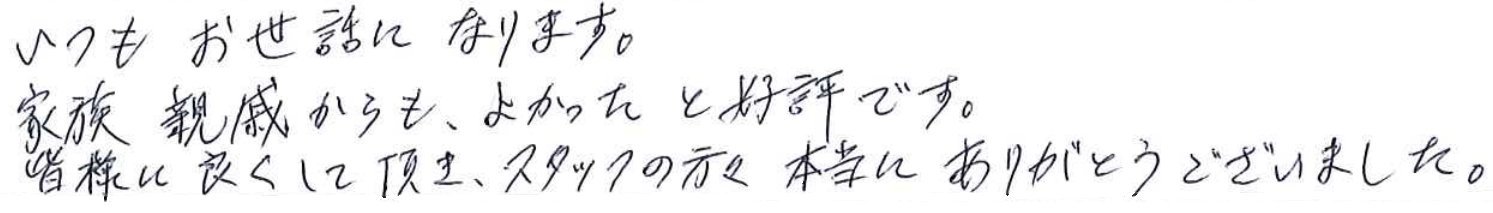 いつも お世話に なります。
家族 親戚からも、よかった と好評です。
皆様に 良くして頂き、スタッフの方々 本当に ありがとうございました。